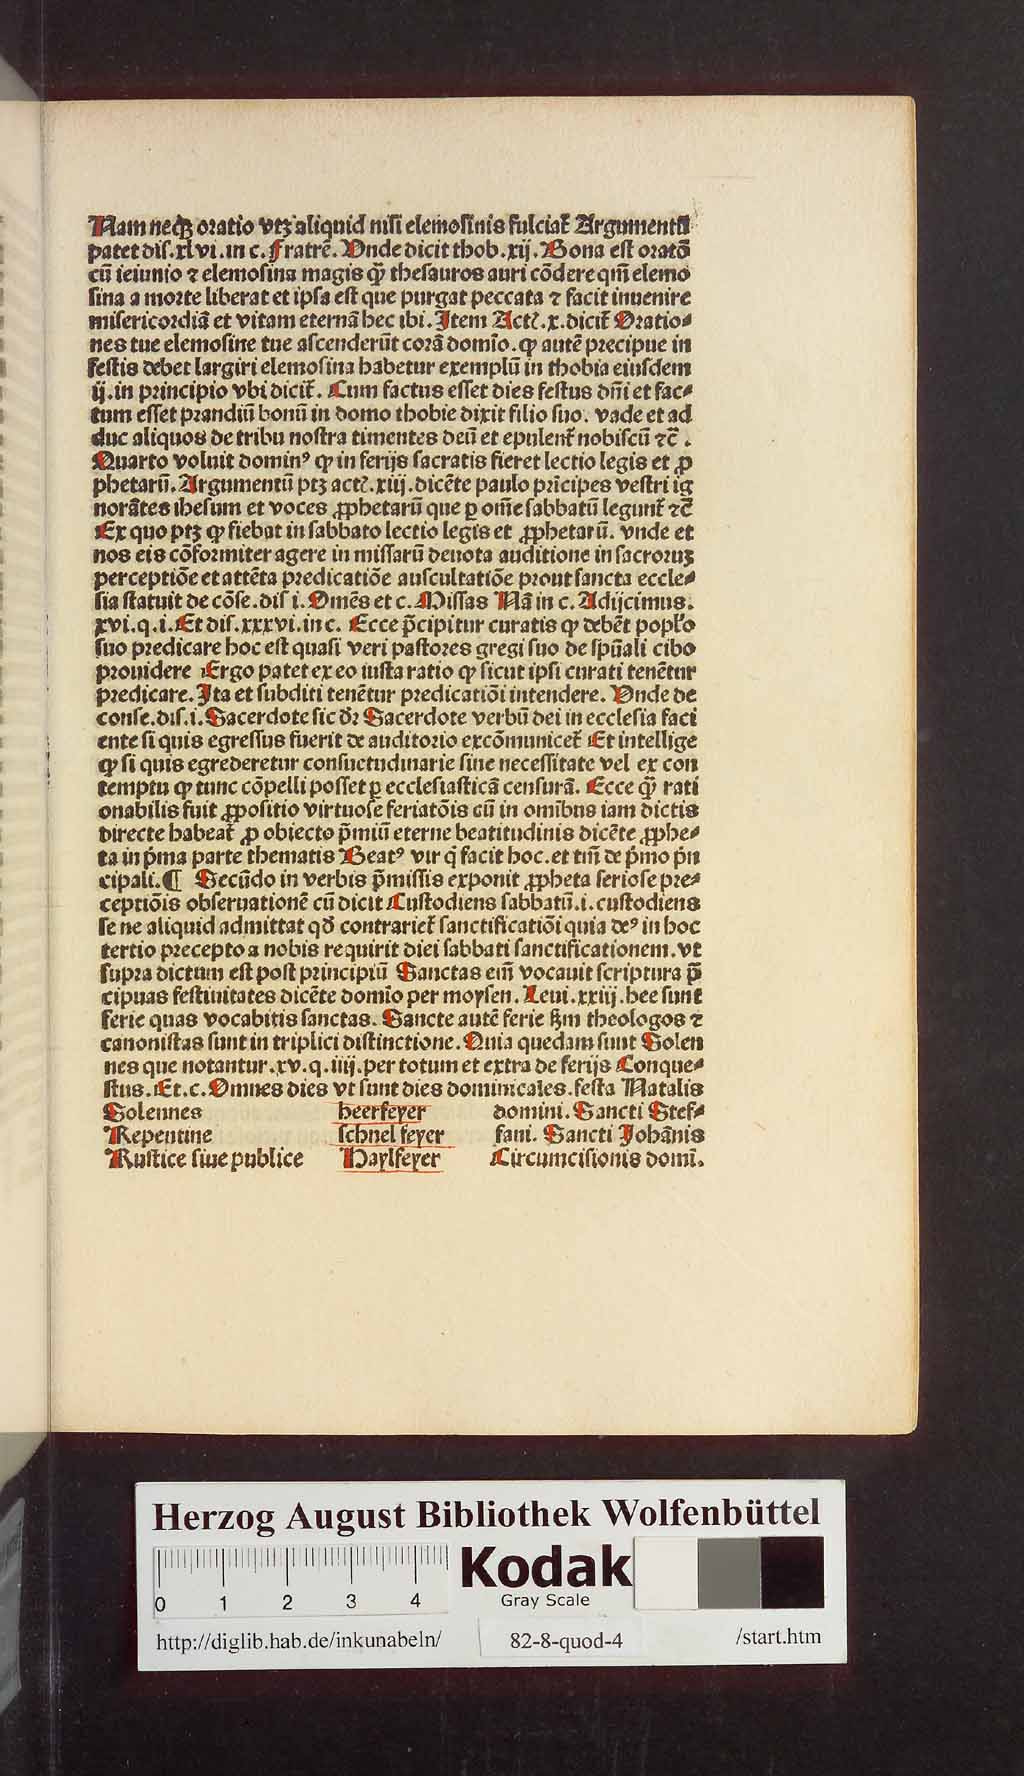 Nam neqꝫ oratio vtꝫ aliquid nisi elemosinis fulciat᷑ Argumentũ
patet dis. xlvi. in c. Fratrẽ. Vnde dicit thob. xij. Bona est oratõ
cũ ieiunio ⁊ elemosina magis qꝫ̃ thesauros auri cõdere qm̃ elemo
sina a morte liberat et ipsa est que purgat peccata ⁊ facit inuenire
misericordiã et vitam eternã hec ibi. Item Act̃. x. dicit᷑ Oratio⸗
nes tue elemosine tue ascenderũt corã domio. ꝙ autẽ precipue in
festis debet largiri elemosina habetur exemplũ in thobia eiusdem
ij. in principio vbi dicit᷑. Cum factus esset dies festus dñi et fac⸗
tum esset prandiũ bonũ in domo thobie dixit filio suo. vade et ad
duc aliquos de tribu nostra timentes deũ et epulent᷑ nobiscũ ⁊c̃.
Quarto voluit dominꝰ ꝙ in ferijs sacratis fieret lectio legis et ꝓ
phetarũ. Argumentũ ptꝫ act̃. xiij. dicẽte paulo prĩcipes vestri ig
norãtes ihesum et voces ꝓphetarũ que ꝑ om̃e sabbatũ legunt᷑ ⁊c̃
Ex quo ptꝫ ꝙ fiebat in sabbato lectio legis et ꝓphetarũ. vnde et
nos eis cõformiter agere in missarũ deuota auditione in sacroruꝫ
perceptiõe et attẽta predicatiõe auscultatiõe prout sancta eccle⸗
sia statuit de cõse. dis i. Omẽs et c. Missas Nã in c. Adijcimus.
xvi. q. i. Et dis. xxxvi. in c. Ecce p̃cipitur curatis ꝙ debẽt popl̃o
suo predicare hoc est quasi veri pastores gregi suo de spũali cibo
prouidere Ergo patet ex eo iusta ratio ꝙ sicut ipsi curati tenẽtur
predicare. Ita et subditi tenẽtur predicatiõi intendere. Vnde de
conse. dis. i. Sacerdote sic dꝛ̃ Sacerdote verbũ dei in ecclesia faci
ente si quis egressus fuerit de auditorio excõmunicet᷑ Et intellige
ꝙ si quis egrederetur consuetudinarie sine necessitate vel ex con
temptu ꝙ tunc cõpelli posset ꝑ ecclesiasticã censurã. Ecce qꝫ̃ rati
onabilis fuit ꝓpositio virtuose feriatõis cũ in omĩbus iam dictis
directe habeat᷑ ꝓ obiecto p̃miũ eterne beatitudinis dicẽte ꝓphe⸗
ta in p̃ma parte thematis Beatꝰ vir q̃ facit hoc. et tm̃ de p̃mo p̃n
cipali. ¶ Secũdo in verbis p̃missis exponit ꝓpheta seriose pre⸗
ceptiõis obseruationẽ cũ dicit Custodiens sabbatũ. i. custodiens
se ne aliquid admittat qđ contrariet᷑ sanctificatiõi quia deꝰ in hoc
tertio precepto a nobis requirit diei sabbati sanctificationem. vt
supra dictum est post principiũ Sanctas eim̃ vocauit scriptura p̃
cipuas festiuitates dicẽte domio per moysen. Leui. xxiij. hee sunt
ferie quas vocabitis sanctas. Sancte autẽ ferie ẜm theologos ⁊
canonistas sunt in triplici distinctione. Quia quedam sunt Solen
nes que notantur. xv. q. iiij. per totum et extra de ferijs Conque⸗
stus. Et. c. Omnes dies vt sunt dies dominicales. festa Natalis
Solennes heerfeyer domini. Sancti Stef⸗
Repentine schnel feyer fani. Sancti Johãnis
Rustice siue publice Haylfeyer Circumcisionis domĩ.
Herzog August Bibliothek Wolfenbüttel
Kodak
Gray Scale
0 1 2 3 4
http://diglib.hab.de/inkunabeln/ 82-8-quod-4 /start.htm